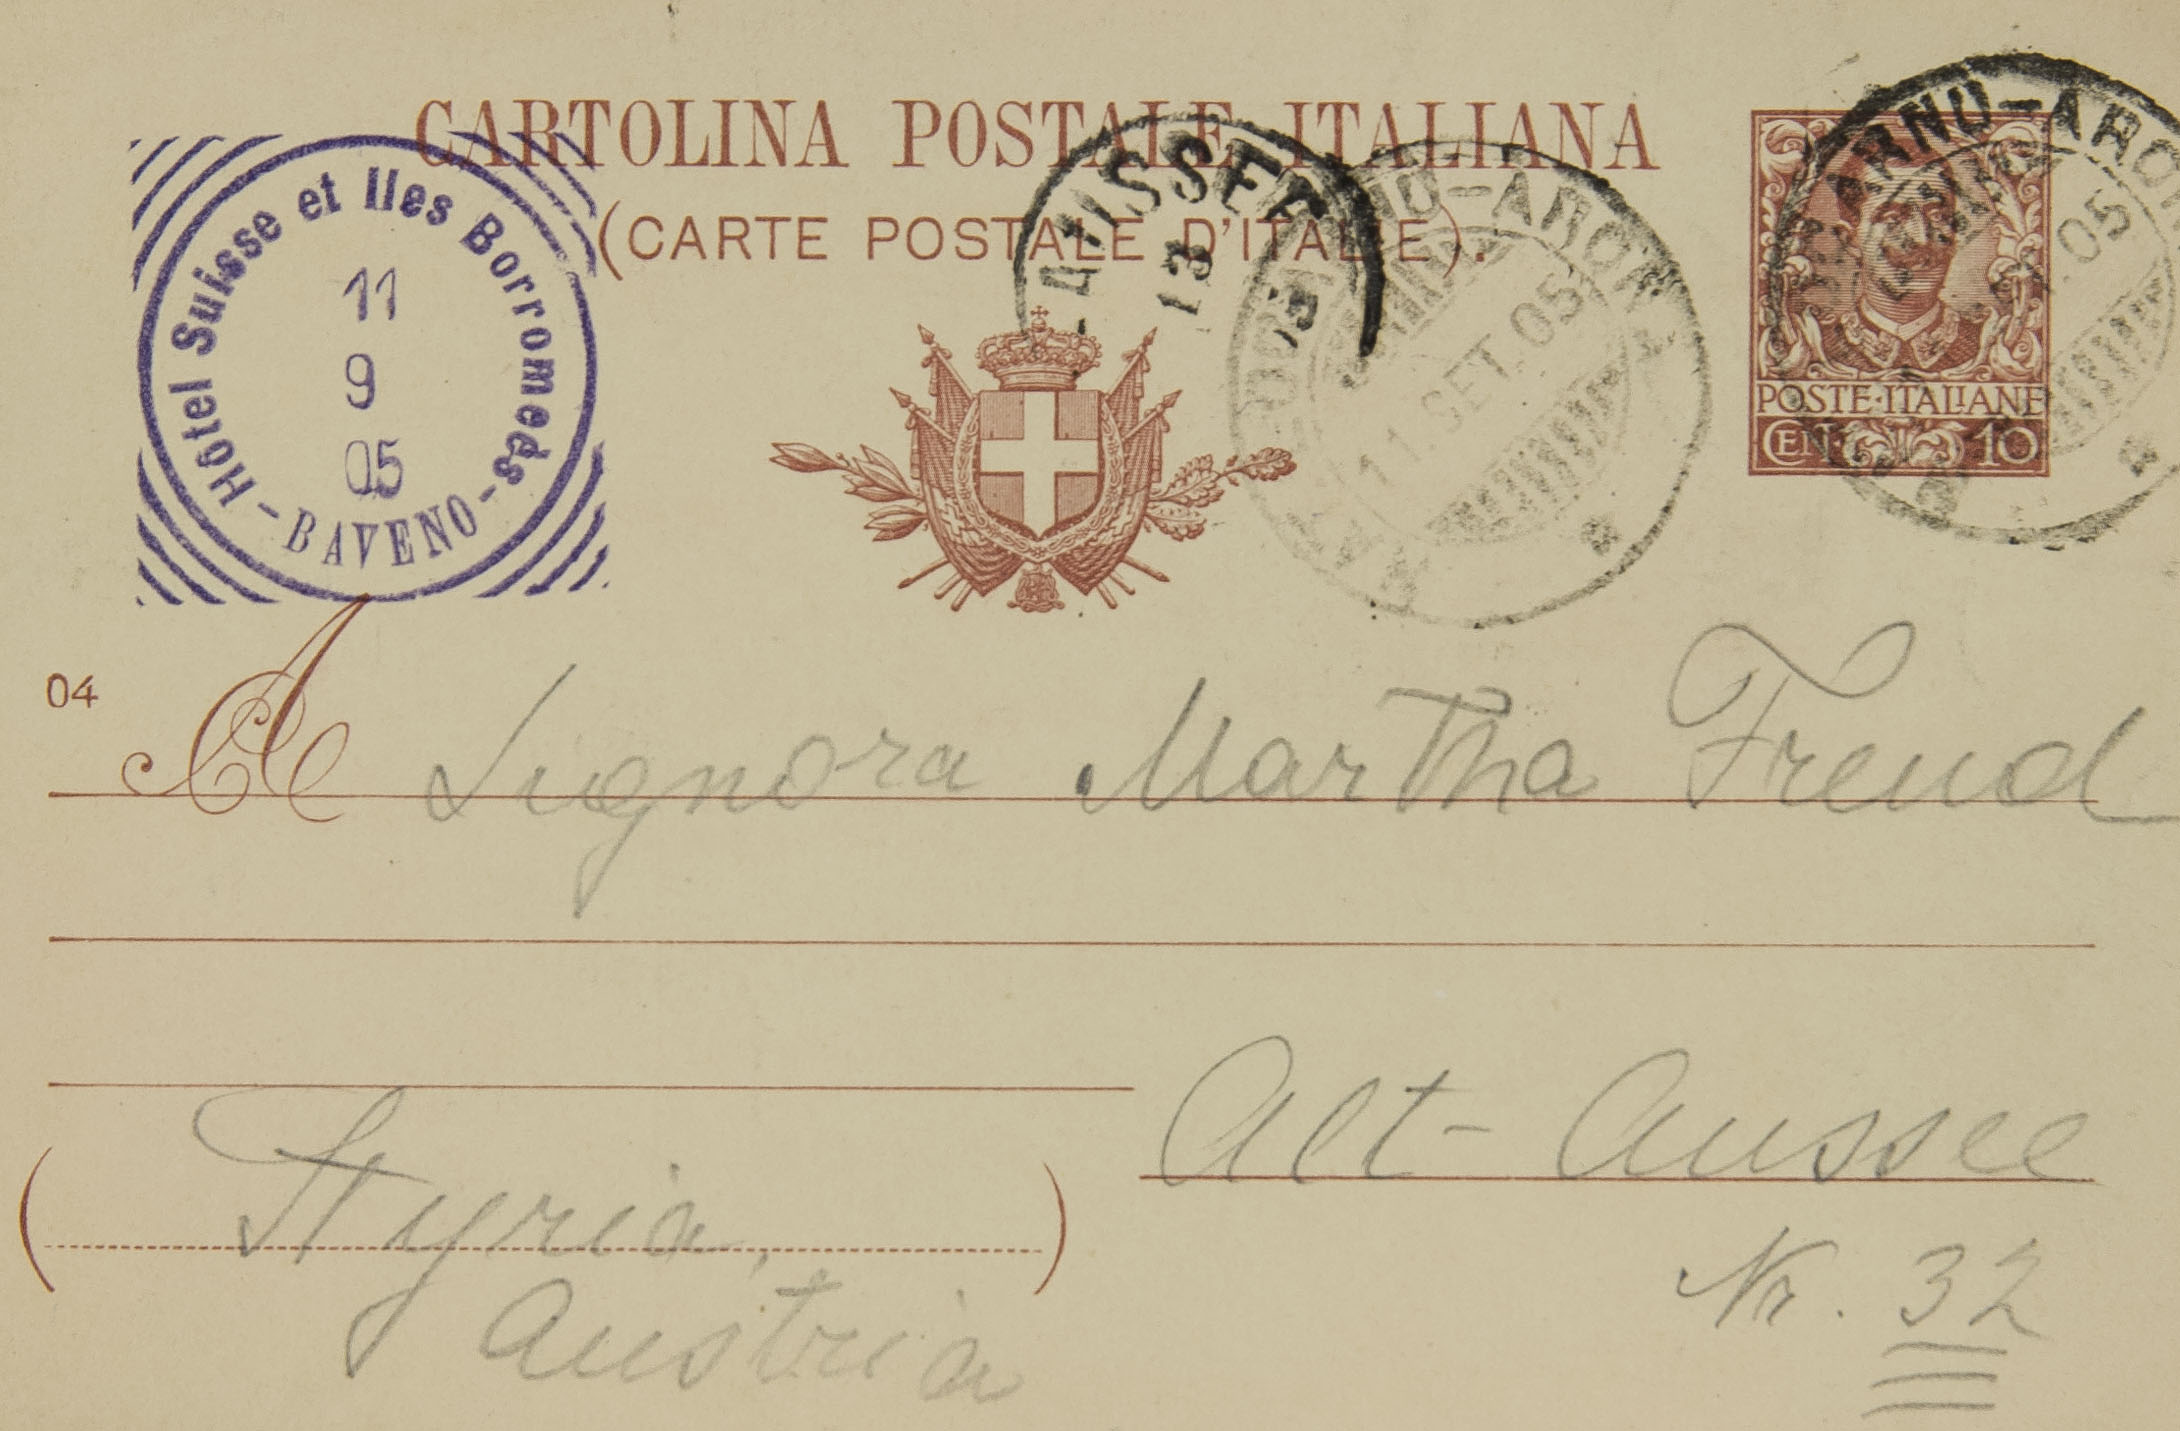 CARTOLINA POSTALE ITALIANA
(CARTE POSTALE D'ITALIE).
Hôtel Suisse et Iles Borromeés
11
9
05
- BAVENO -
13
ARNO-ARONA
11.SET.05
ARNO-ARO
05
POSTE·ITALIANE
CEN. 10
04
A Signora Martha Freud
Alt-Aussee
Nr. 32
(Styria,)
Austria